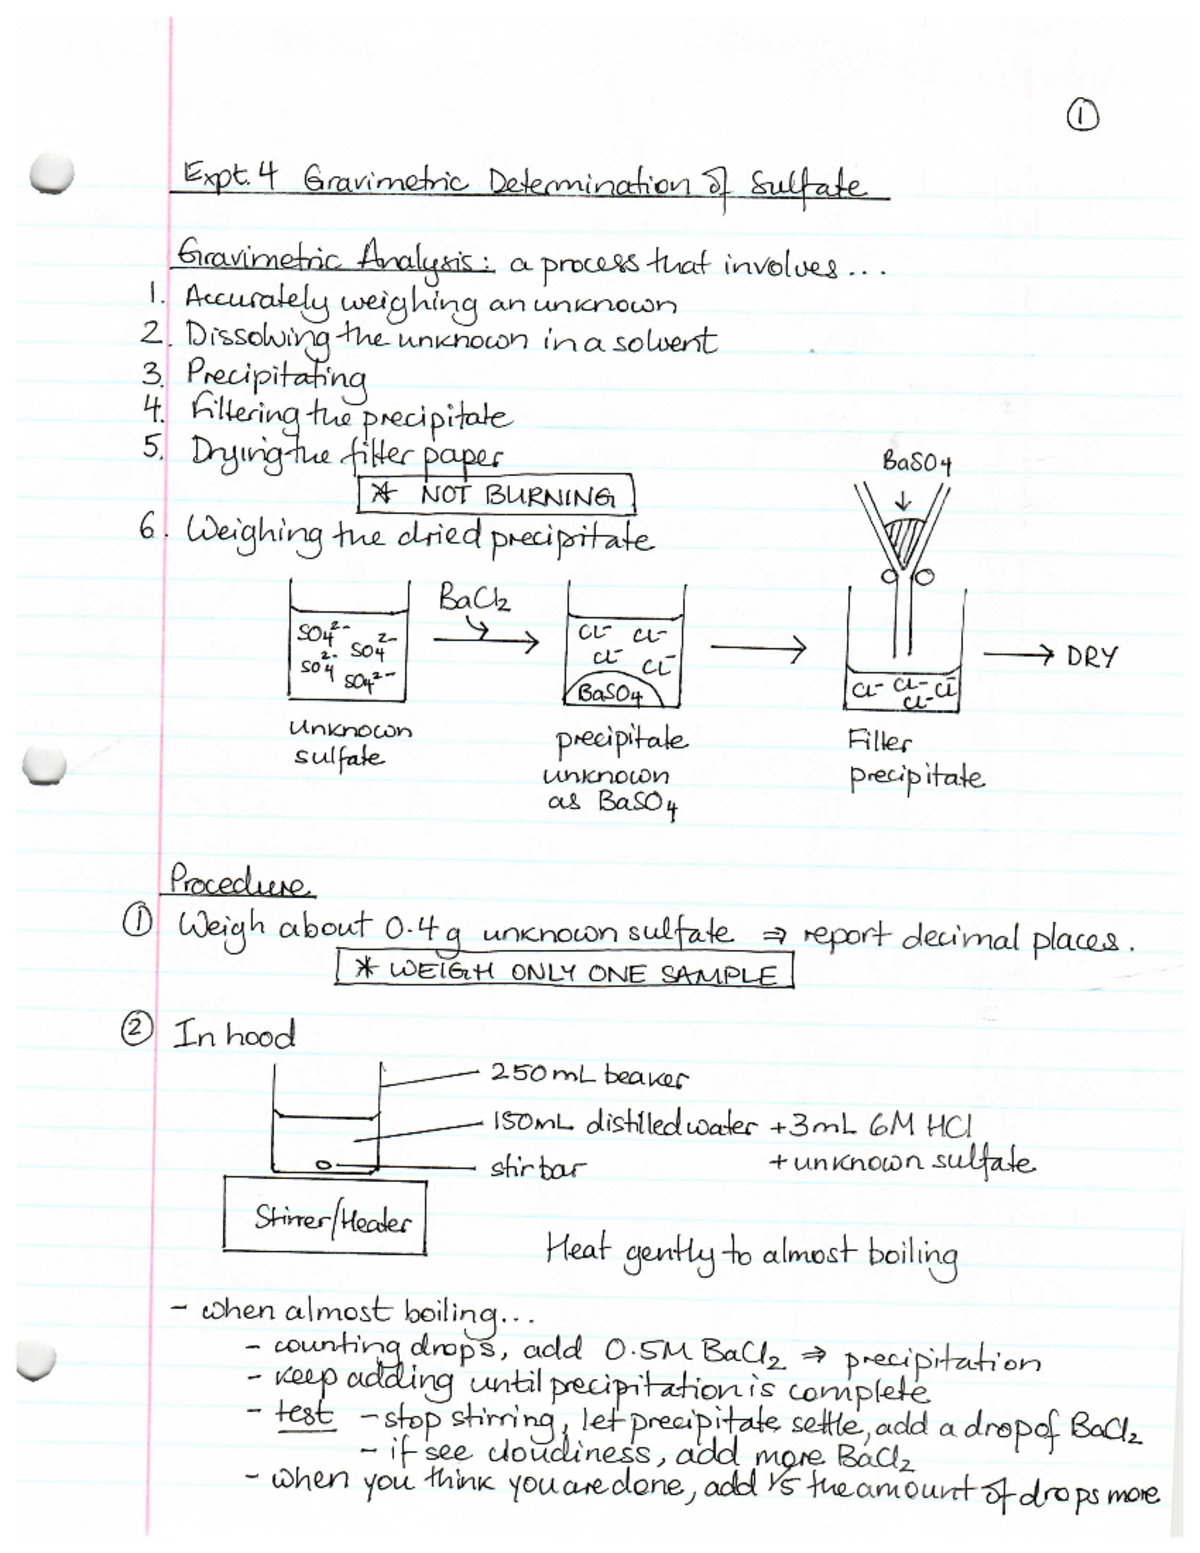 ①
Expt. 4 Gravimetric Determination of Sulfate
Gravimetric Analysis: a process that involves...
1. Accurately weighing an unknown
2. Dissolving the unknown in a solvent
3. Precipitating
4. Filtering the precipitate
5. Drying the filter paper
* NOT BURNING
6. Weighing the dried precipitate
BaSO4
SO4²⁻ SO4²⁻ SO4²⁻ SO4²⁻
BaCl2
Cl⁻ Cl⁻ Cl⁻ Cl⁻
BaSO4
Cl⁻ Cl⁻ Cl⁻ Cl⁻
DRY
unknown
sulfate
precipitate
unknown
as BaSO4
Filter
precipitate
Procedure
① Weigh about 0.4g unknown sulfate ⇒ report decimal places.
* WEIGH ONLY ONE SAMPLE
② In hood
250mL beaker
150mL distilled water +3mL 6M HCl
+ unknown sulfate
stir bar
Stirrer/Heater
Heat gently to almost boiling
- when almost boiling...
- counting drops, add 0.5M BaCl2 ⇒ precipitation
- keep adding until precipitation is complete
- test - stop stirring, let precipitate settle, add a drop of BaCl2
- if see cloudiness, add more BaCl2
- when you think you are done, add 1/5 the amount of drops more